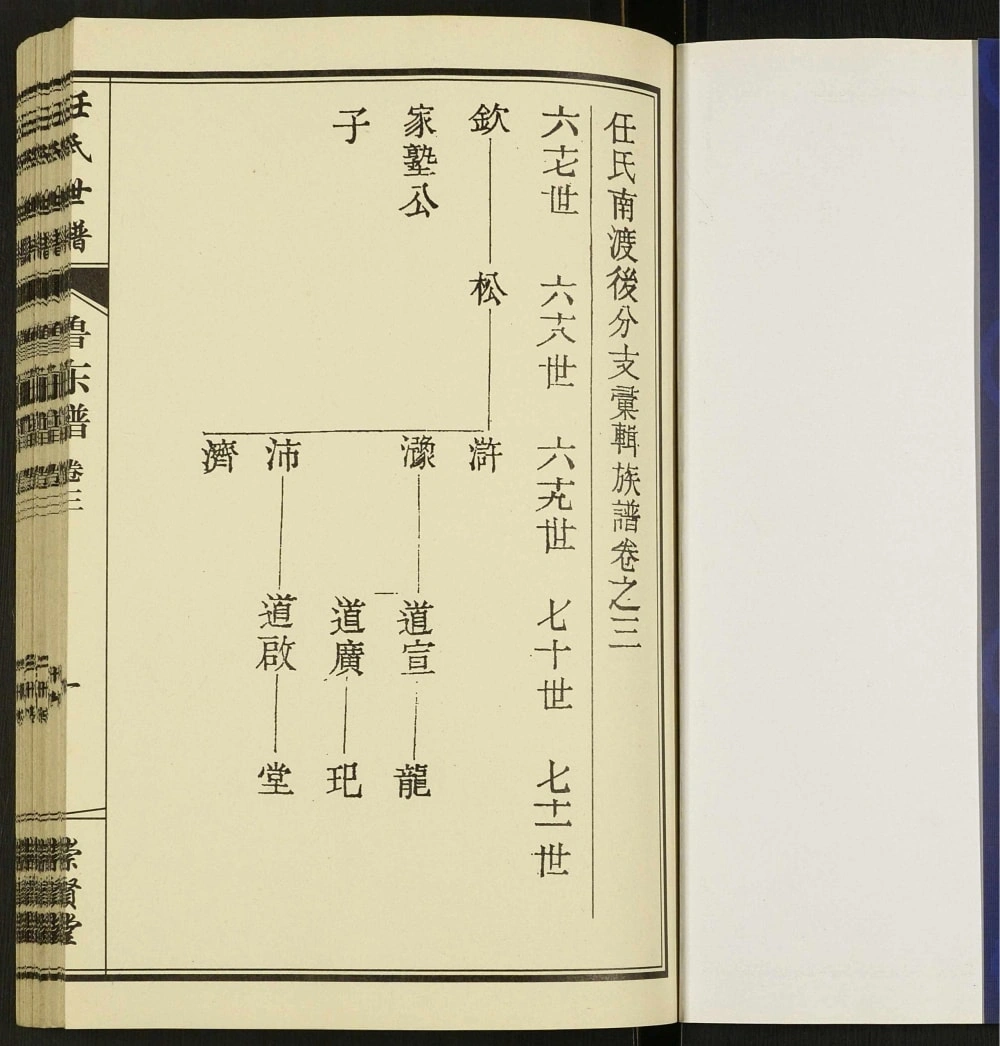 任氏南渡後分支彙輯族譜卷之三
六十七世 六十八世 六十九世 七十世 七十一世
欽 松 滸
家塾公 瀠 道宣 龍
子 道廣 玘
沛 道啟 堂
濟
任氏世譜 鲁东谱 卷三 一 崇賢堂